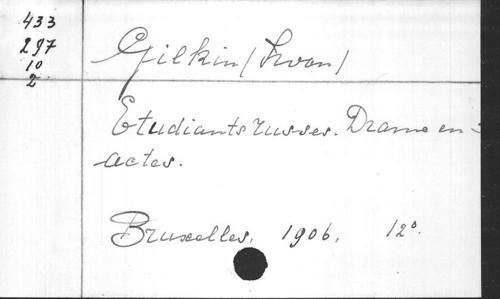 433
297
10
2
Gilkin (Iwan)
Etudiants russes. Drame en 3
actes.
Bruxelles, 1906, 12°.